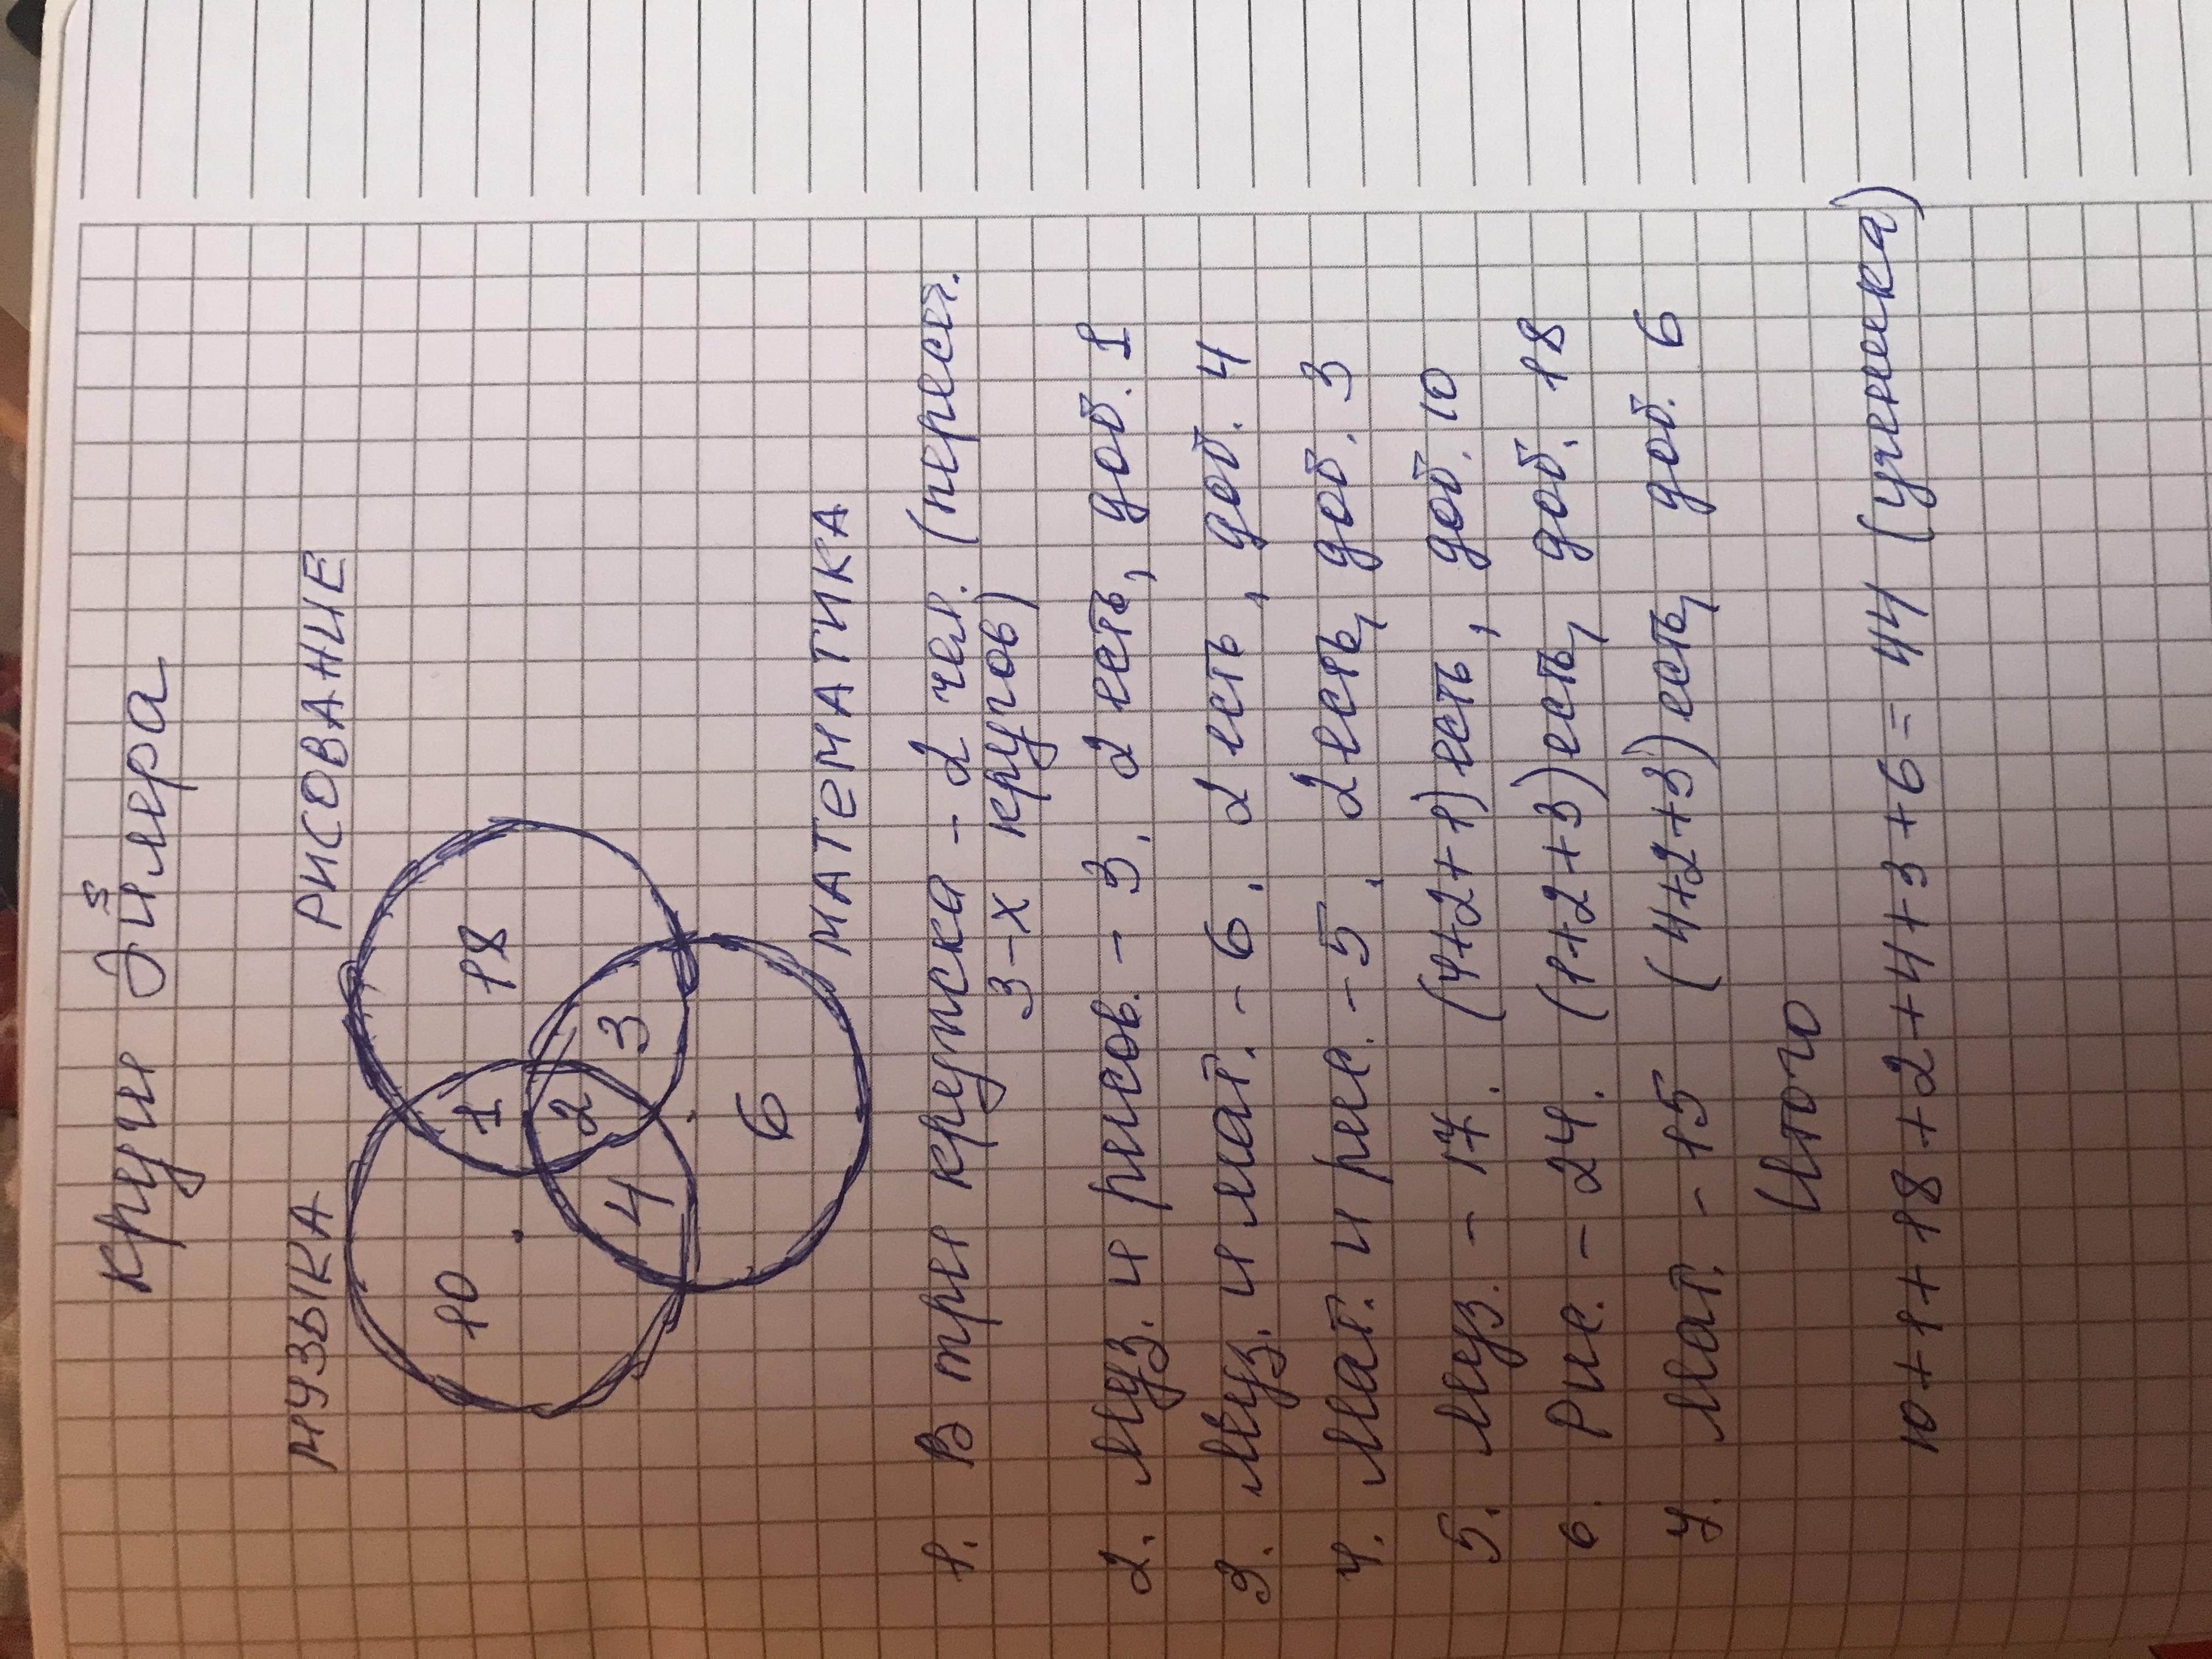 Круги Эйлера
МУЗЫКА РИСОВАНИЕ
10 1 18
4 2 3
6
МАТЕМАТИКА
1. В три кружка - 2 чел. (перест.
3-х кругов)
2. Муз. и рисов. - 3. 2 есть, доб. 1
3. Муз. и мат. - 6. 2 есть, доб. 4
4. Мат. и рис. - 5. 2 есть, доб. 3
5. Муз. - 17. (4+2+1) есть, доб. 10
6. Рис. - 24. (1+2+3) есть, доб. 18
7. Мат. - 15 (4+2+3) есть, доб. 6
Итого
10+1+18+2+4+3+6=44 (ученика)